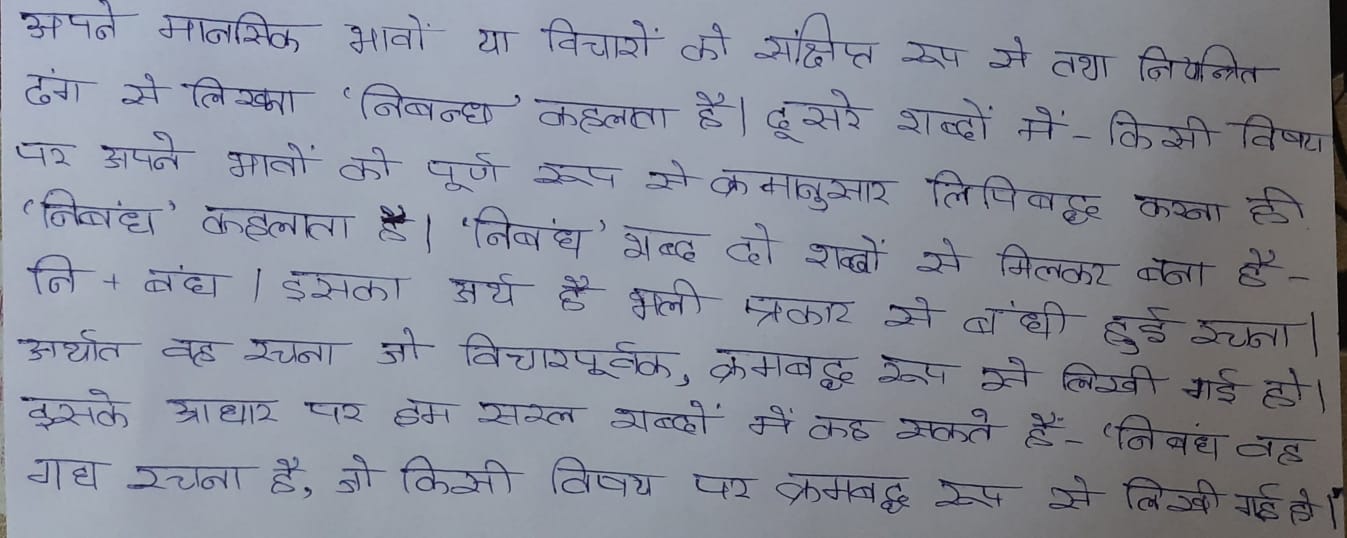 अपने मानसिक भावों या विचारों को संक्षिप्त रूप से तथा नियन्त्रित
ढंग से लिखना 'निबन्ध' कहलता है। दूसरे शब्दों में- किसी विषय
पर अपने भावों को पूर्ण रूप से क्रमानुसार लिपिबद्ध करना ही
'निबंध' कहलाता है। 'निबंध' शब्द दो शब्दों से मिलकर बना है-
नि + बंध। इसका अर्थ है भली प्रकार से बंधी हुई रचना।
अर्थात वह रचना जो विचारपूर्वक, क्रमबद्ध रूप से लिखी गई हो।
इसके आधार पर हम सरल शब्दों में कह सकते हैं- 'निबंध वह
गद्य रचना है, जो किसी विषय पर क्रमबद्ध रूप से लिखी गई हो।'